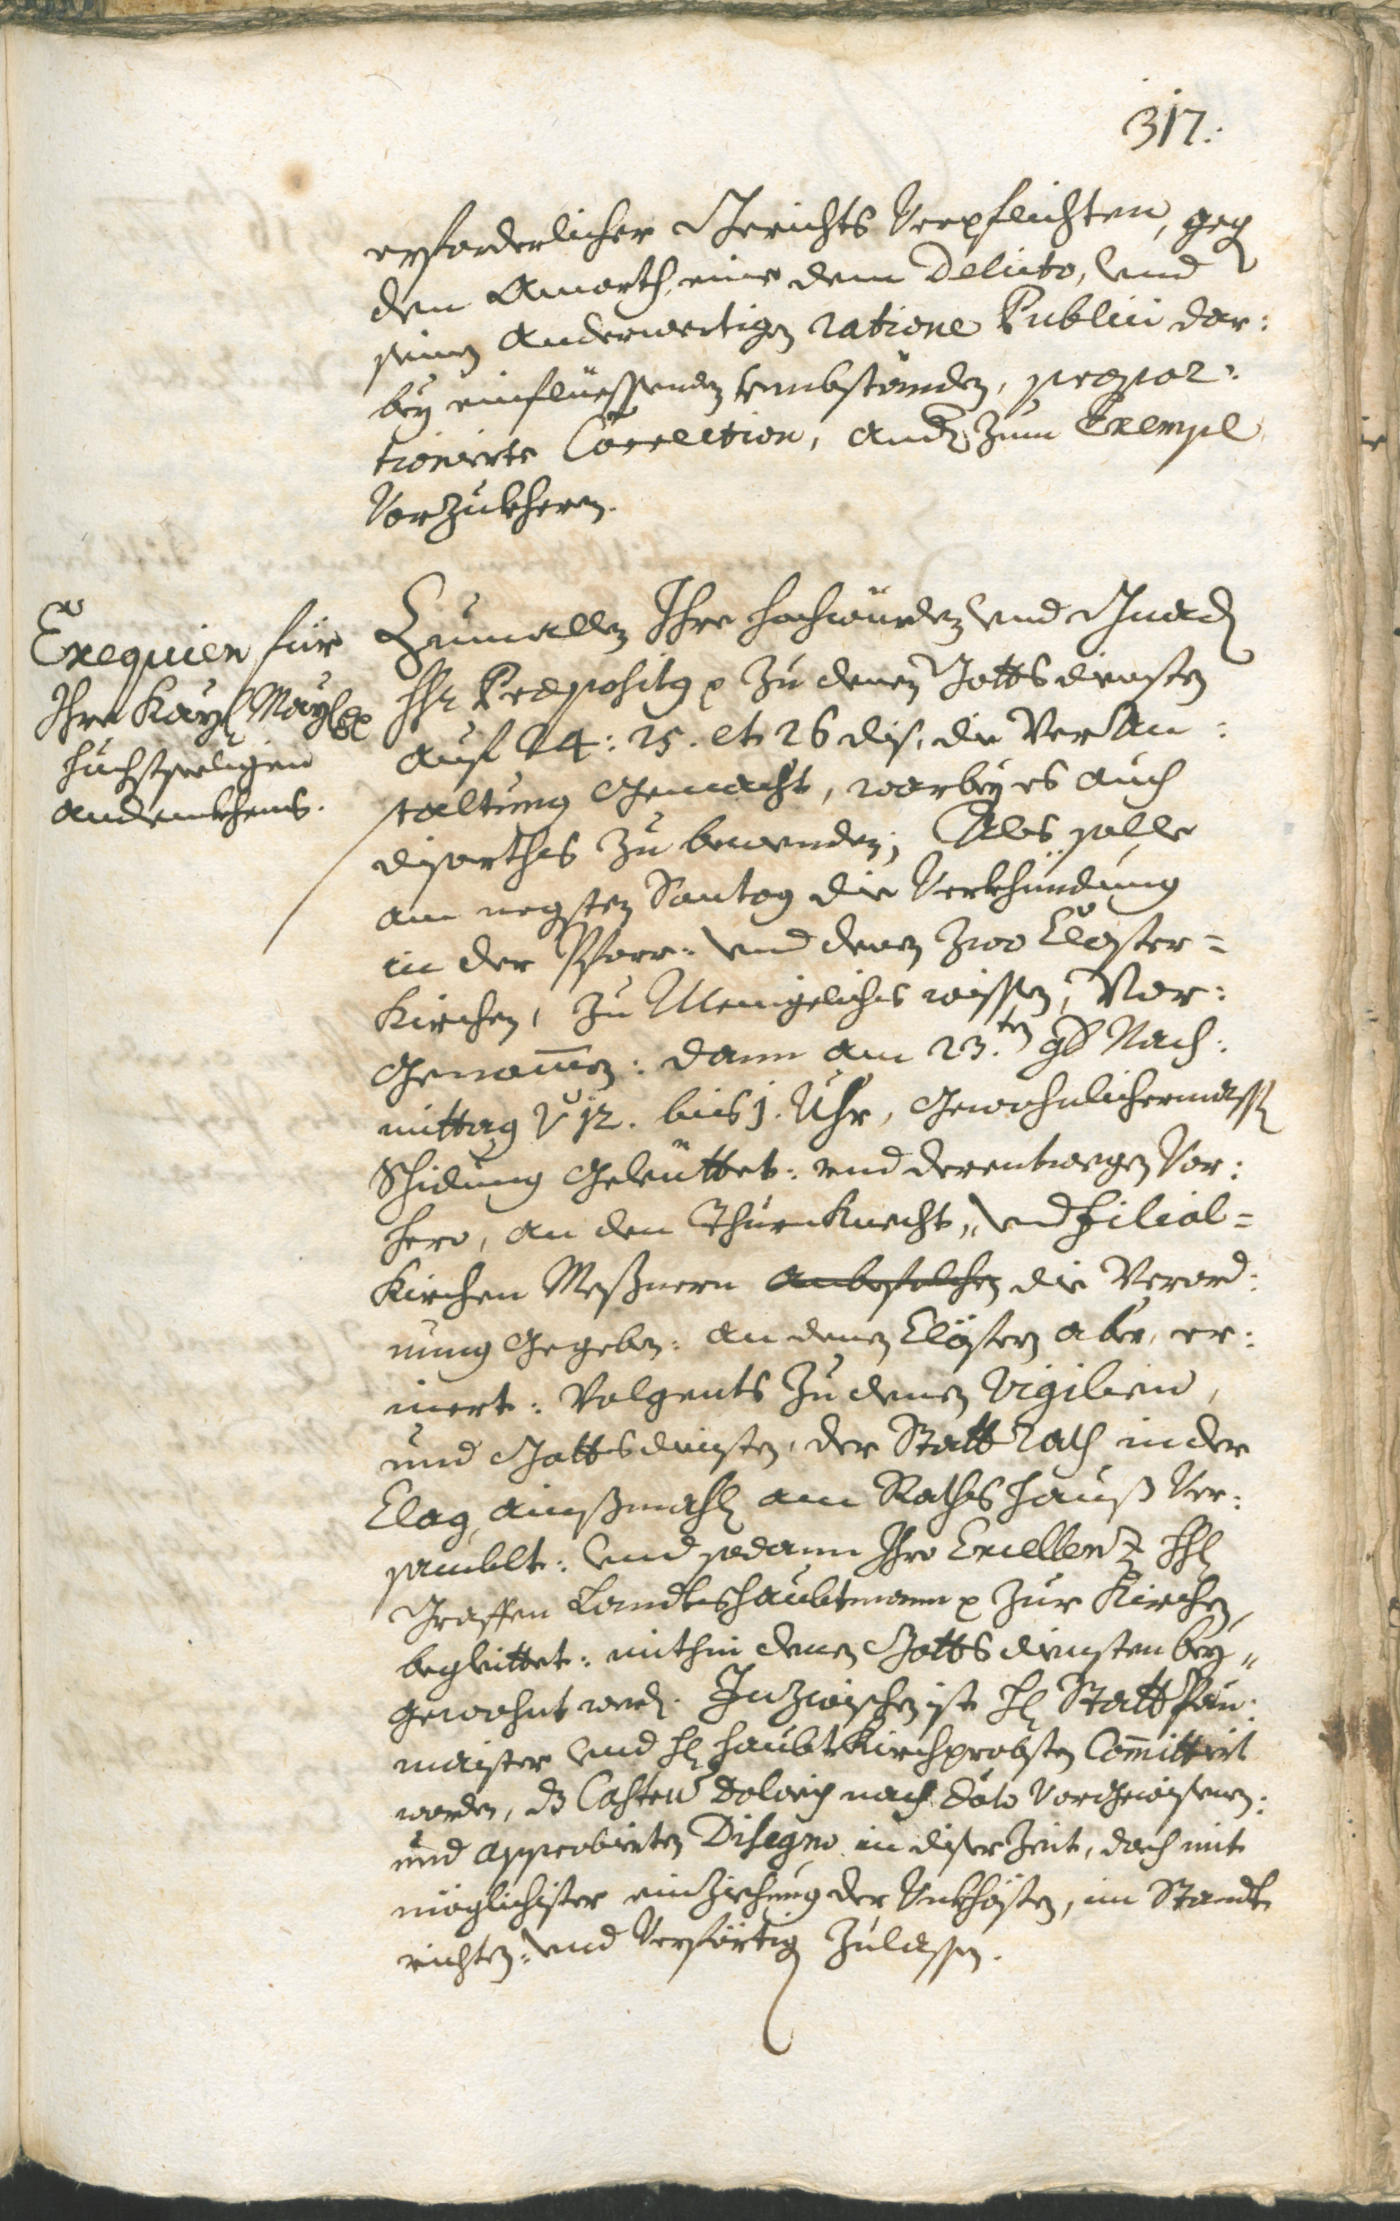 317.
erforderlicher Gerichts Verpflichten, geg
den Amorth, eine dem Delicto, und
seinen anderwertigen ratione Publici dar:
bey einflüessenden umbständen, propor:
tionierte Correction, auch zum Exempl
Vorzukheren.
Exequien für
Ihro Kayl: May: etc
höchstseeligen
andenkhens.
Zumallen Ihro hochwürden und Gnaden
Hr. Praepositus etc zu denen Gottsdiensten
auf 24: 25. et 26 dis, die Veran:
staltung gemacht, warbey es auch
diserthes zu bewenden; Als solle
am negsten Sontag die Verkhündung
in der Pfarr: und denen zwo Closter=
Kirchen, zu Menigeliches wissen, Vor:
genomen: dann am 23.ten gd Nach:
mittag v 12. bis 1. Uhr, gewohnlichermassen
Schidung geleüttet: und derentwegen Vor:
hero, an den Thurnknecht, und Filial=
Kirchen Meßnern anbefolchen die Verord:
nung gegeben: an denen Clöstern aber, er:
inert: Volgents zu denen Vigilien,
und Gottsdiensten, der Statt Rath in der
Clag, ainßmahls am Rathshauß Ver:
samblet: und sodann Ihro Excellenz Hl
Graffen Landtshaubtmann etc zur Kirchen
begleittet: mithin denen Gottsdiensten bey„
gewohnt werden. Inzwischen ist Hl Statt Pau:
maister und Hl haubt Kirchprobsten Committirt
worden, dz Castrum Doloris nach dato Vorgewisenen:
und approbierten Disegno in diser Zeit, doch mit
möglichister einziehung der Unkhösten, im Standt
richten: und Verförtigen zulassen.